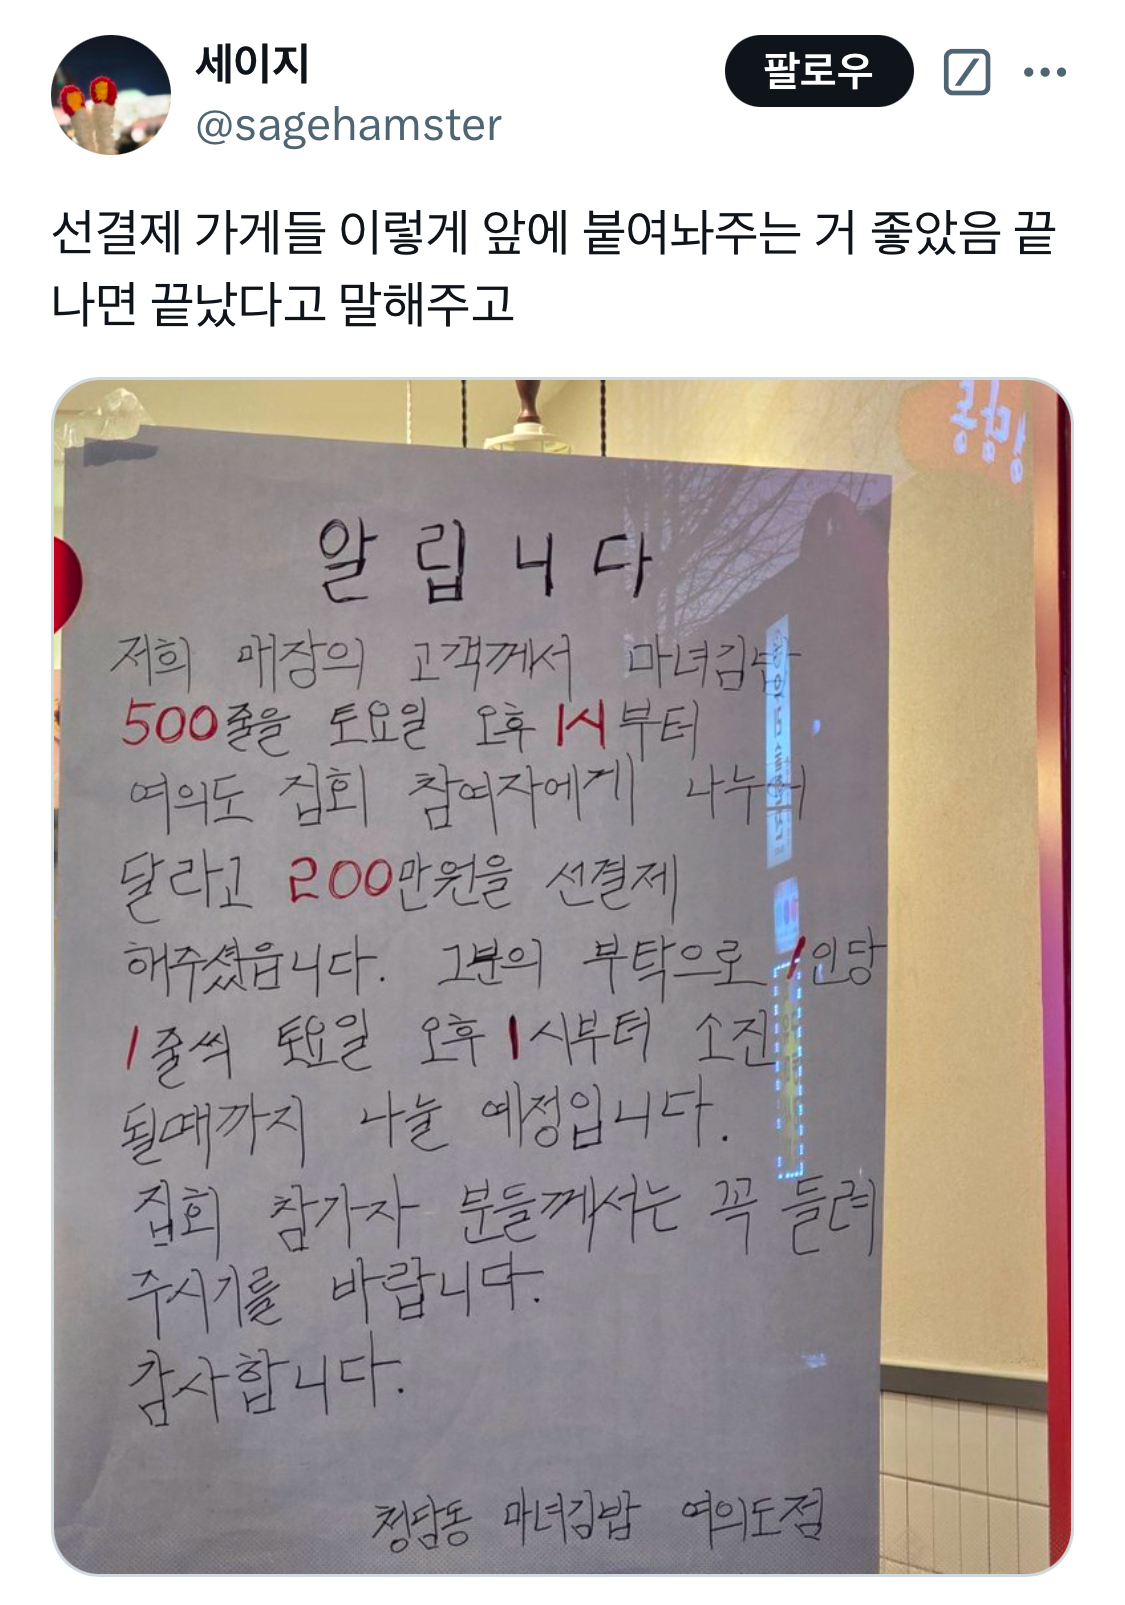 세이지
팔로우
@sagehamster
선결제 가게들 이렇게 앞에 붙여놔주는 거 좋았음 끝
나면 끝났다고 말해주고
알립니다
저희 매장의 고객께서 마녀김밥
500줄을 토요일 오후 1시부터
여의도 집회 참여자에게 나누어
달라고 200만원을 선결제
해주셨읍니다. 그분의 부탁으로 1인당
1줄씩 토요일 오후 1시부터 소진
될때까지 나눌 예정입니다.
집회 참가자 분들께서는 꼭 들려
주시기를 바랍니다.
감사합니다.
청담동 마녀김밥 여의도점